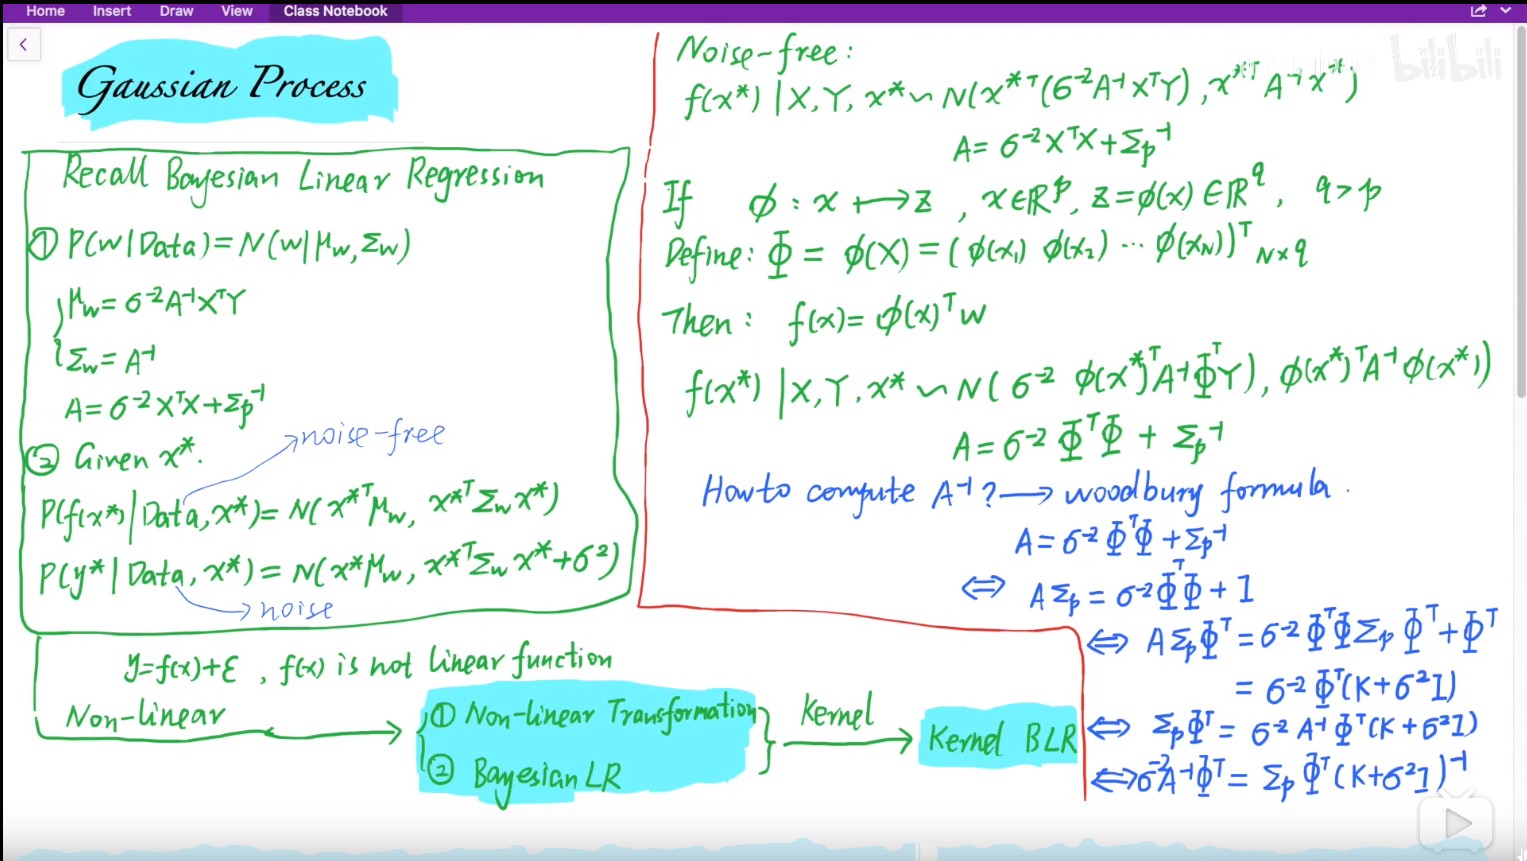 Home Insert Draw View Class Notebook
bilibili
Gaussian Process
Recall Bayesian Linear Regression
① P(w|Data)=N(w|μw,Σw)
μw=σ⁻²A⁻¹XᵀY
Σw=A⁻¹
A=σ⁻²XᵀX+Σp⁻¹
② Given x*.
noise-free
P(f(x*)|Data,x*)=N(x*ᵀμw, x*ᵀΣw x*)
P(y*|Data,x*)=N(x*μw, x*ᵀΣw x*+σ²)
noise
y=f(x)+ε, f(x) is not linear function
Non-linear
① Non-linear Transformation
② Bayesian LR
Kernel
Kernel BLR
Noise-free:
f(x*)|X,Y,x*∽N(x*ᵀ(σ⁻²A⁻¹XᵀY),x*ᵀA⁻¹x*)
A=σ⁻²XᵀX+Σp⁻¹
If ϕ:x↦z, x∈ℝᵖ, z=ϕ(x)∈ℝ^q, q>p
Define: Φ=ϕ(X)=(ϕ(x₁) ϕ(x₂) ⋯ ϕ(x_N))ᵀ N×q
Then: f(x)=ϕ(x)ᵀw
f(x*)|X,Y,x*∽N(σ⁻² ϕ(x*)ᵀA⁻¹ΦᵀY), ϕ(x*)ᵀA⁻¹ϕ(x*))
A=σ⁻²ΦᵀΦ+Σp⁻¹
How to compute A⁻¹?→woodbury formula.
A=σ⁻²ΦᵀΦ+Σp⁻¹
⇔ AΣp=σ⁻²ΦᵀΦ+I
⇔ AΣpΦᵀ=σ⁻²ΦᵀΦΣpΦᵀ+Φᵀ
=σ⁻²Φᵀ(K+σ²I)
⇔ ΣpΦᵀ=σ⁻²A⁻¹Φᵀ(K+σ²I)
⇔σ⁻²A⁻¹Φᵀ=ΣpΦᵀ(K+σ²I)⁻¹